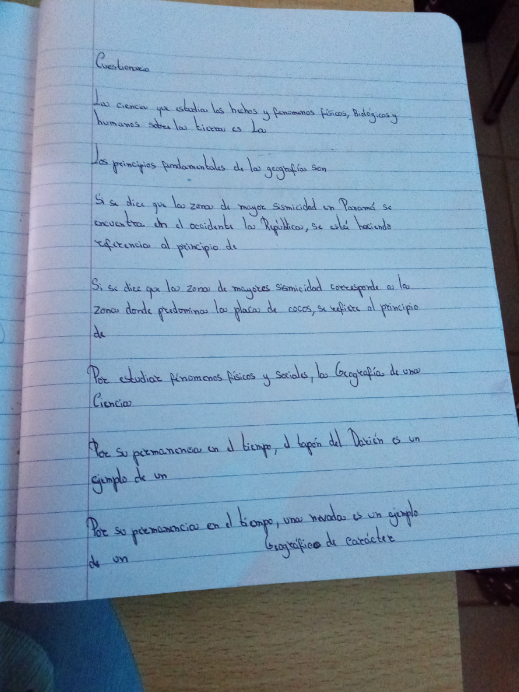 Cuestionario
La ciencia que estudia los hechos y fenomenos físicos, Biológicos y
humanos sobre la tierra es La
Los principios fundamentales de la geografía son
Si se dice que la zona de mayor sismicidad en Panamá se
encuentra en el occidente la República, se está haciendo
referencia al principio de
Si se dice que la zona de mayores sismicidad corresponde a la
zona donde predomina la placa de cocos, se refiere al principio
de
Por estudiar fenomenos físicos y sociales, la Geografía de una
Ciencia
Por su permanencia en el tiempo, el tapón del Darién es un
ejemplo de un
Por su permanencia en el tiempo, una nevada es un ejemplo
de un Geográfico de carácter